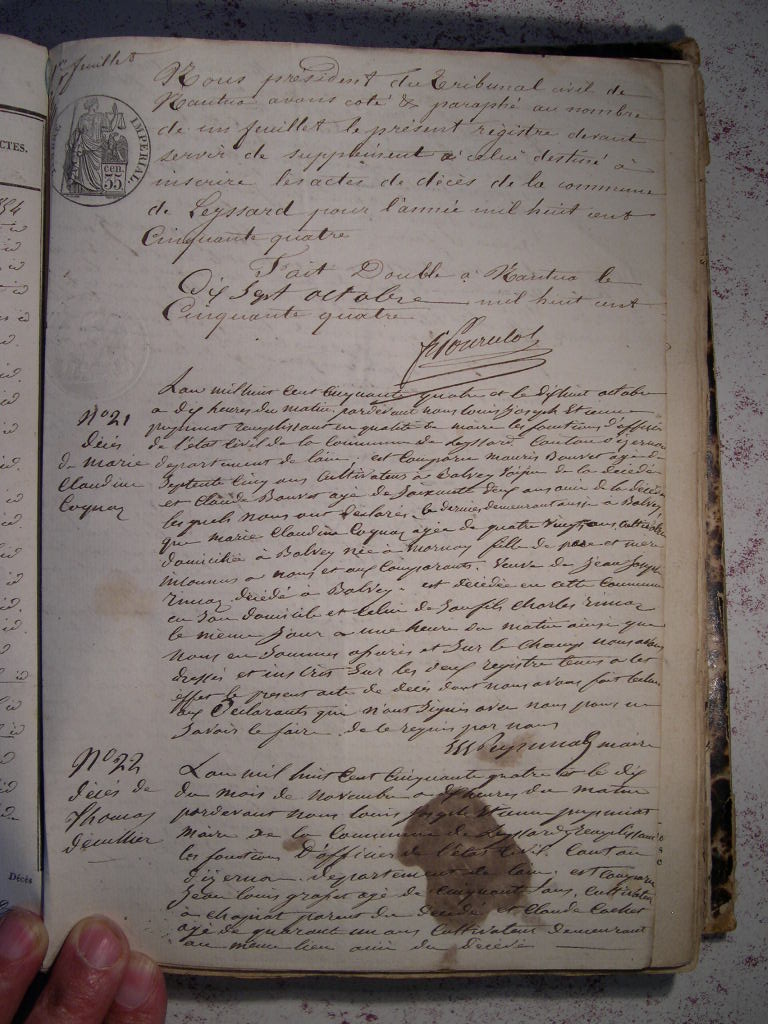 1er feuillet
IMPERIAL.
35
CEN.
Nous président du Tribunal civil de
Nantua avons coté & paraphé au nombre
de un feuillet le présent registre devant
servir de supplément à celui destiné à
inscrire les actes de décès de la commune
de Leyssard pour l'année mil huit cent
Cinquante quatre
Fait Double à Nantua le
Dix Sept octobre mil huit cent
Cinquante quatre
No 21
décès
de marie
Claudine
Cognaz
Lan mil huit cent cinquante quatre et le dixhuit octobre
a dix heures du matin pardevant nous louis Joseph Etienne
remplissant en qualité de maire les fonctions d'officier
de l'état civil de la Commune de Leyssard Canton d'izernore
departement de lain est Comparu mauris Bouvet agé de
Septente Cinq ans Cultivateurs a Balvey voisin de la décédée
et Claude Bouvet agé de Soixante deux ans ami de la décédée
les quels nous ont déclarés le dernier demeurant aussi a Balvey
que marie Claudine Cognaz agée de quatre vingt ans
domiciliée à Balvey née à mornay fille de pere et mere
inconnus a nous et aux Comparants. veuve de Jean Joseph
decédé à Balvey. est décédée en cette Commune
en son domicile et celui de son fils Charles
le meme Jour a une heure du matin ainsi que
nous en Sommes assurés et Sur le Champ nous avons
dressés et inscrit Sur les deux registre tenus a cet
effet le present acte de décès dont nous avons fait lecture
aux Déclarants qui n'ont Signés avec nous pour ne
Savoir le faire de ce requis par nous
maire
No 22
décès de
Thomas
Lan mil huit Cent Cinquante quatre et le dix
du mois de novembre a heures du matin
pardevant nous louis Joseph Etienne
maire de la Commune de Leyssard remplissant
les fonctions D'officier de l'état Civil Canton
dizernore departement de lain. est Comparu
Jean louis agé de Cinquante ans, Cultivateur
a parent du décédé et Claude Cochet
agé de quarant un ans Cultivateur demeurant
au meme lieu ami du décédé
CTES.
Décès